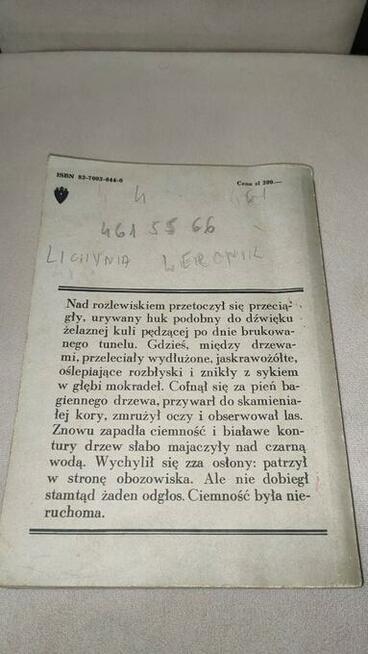 ISBN 83-7003-644-6
Cena zł 200.—
4
461 55 66
Nad rozlewiskiem przetoczył się przecią-
gły, urywany huk podobny do dźwięku
żelaznej kuli pędzącej po dnie brukowa-
nego tunelu. Gdzieś, między drzewa-
mi, przeleciały wydłużone, jaskrawożółte,
oślepiające rozbłyski i znikły z sykiem
w głębi mokradeł. Cofnął się za pień ba-
giennego drzewa, przywarł do skamienia-
łej kory, zmrużył oczy i obserwował las.
Znowu zapadła ciemność i białawe kon-
tury drzew słabo majaczyły nad czarną
wodą. Wychylił się zza osłony: patrzył
w stronę obozowiska. Ale nie dobiegł
stamtąd żaden odgłos. Ciemność była nie-
ruchoma.